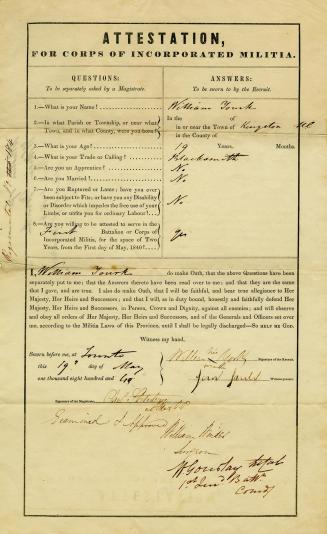 ATTESTATION,
FOR CORPS OF INCORPORATED MILITIA.
QUESTIONS:
To be separately asked by a Magistrate.
ANSWERS:
To be sworn to by the Recruit.
1.—What is your Name?
William
2.—In what Parish or Township, or near what
Town, and in what County, were you born?
In the of
in or near the Town of Kingston
in the County of
3.—What is your Age?
19 Years, Months
4.—What is your Trade or Calling?
Blacksmith
5.—Are you an Apprentice?
No
6.—Are you Married?
No
7.—Are you Ruptured or Lame; have you ever
been subject to Fits; or have you any Disability
or Disorder which impedes the free use of your
Limbs, or unfits you for ordinary Labour?
No
8.—Are you willing to be attested to serve in the
First Battalion or Corps of
Incorporated Militia, for the space of Two
Years, from the First day of May, 1840?
Yes
I, William do make Oath, that the above Questions have been
separately put to me; that the Answers thereto have been read over to me; and that they are the same
that I gave, and are true. I also do make Oath, that I will be faithful, and bear true allegiance to Her
Majesty, Her Heirs and Successors; and that I will, as in duty bound, honestly and faithfully defend Her
Majesty, Her Heirs and Successors, in Person, Crown and Dignity, against all enemies; and will observe
and obey all orders of Her Majesty, Her Heirs and Successors, and of the Generals and Officers set over
me, according to the Militia Laws of this Province, until I shall be legally discharged—So help me God.
Witness my hand,
Sworn before me, at Toronto
this 19th day of May
one thousand eight hundred and
his
mark
Signature of the Recruit.
Witness present.
Signature of the Magistrate,
Examined & Approved
William
Surgeon
W Gourlay
1st Batt